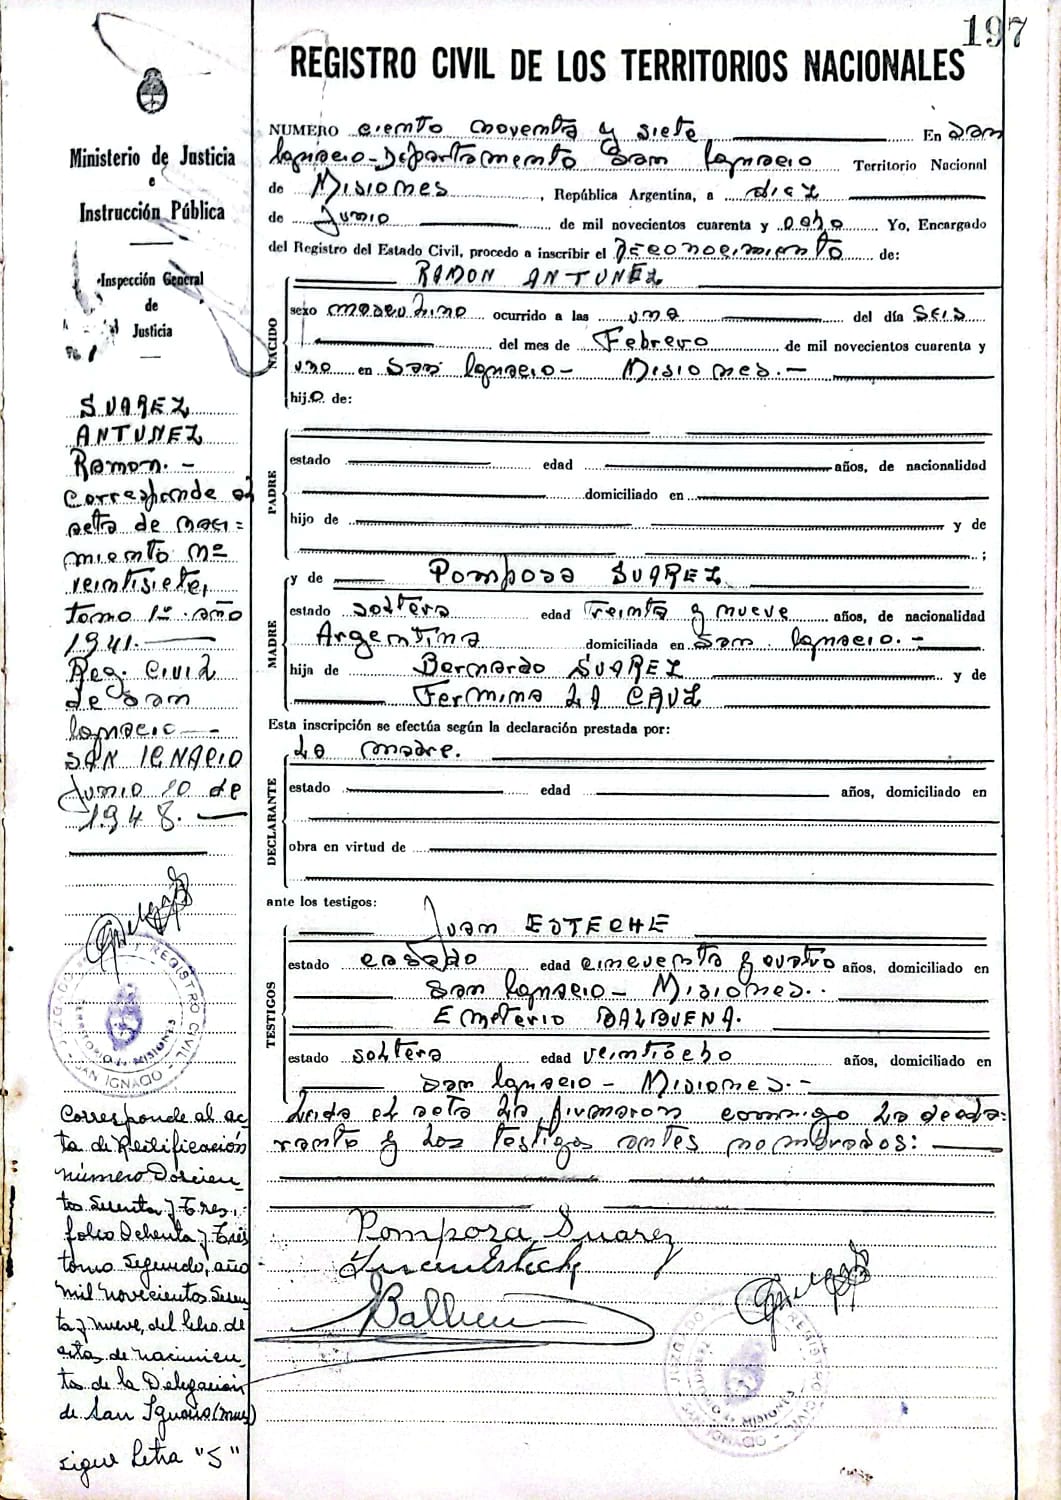 197
REGISTRO CIVIL DE LOS TERRITORIOS NACIONALES
Ministerio de Justicia
e
Instrucción Pública
Inspección General
de
Justicia
SUAREZ
ANTUNEZ
Ramon.-
Corresponde al
acta de naci=
miento Nº
veintisiete,
tomo 1º año
1941.
Reg. Civil
de San
Ignacio
SAN IGNACIO
Junio 10 de
1948.
JUZGADO REGISTRO CIVIL
TERRITORIO de MISIONES
SAN IGNACIO
Corresponde al ac
ta de Rectificación
número Doscien_
tos Sesenta y Tres,
folio Ochenta y Tres
tomo Segundo, año
mil novecientos Sesen
ta y nueve, del libro de
actas de nacimien_
tos de la Delegación
de San Ignacio (mnes)
sigue letra "S"
NUMERO ciento noventa y siete En San
Ignacio-Departamento San Ignacio Territorio Nacional
de Misiones, República Argentina, a diez
de Junio de mil novecientos cuarenta y ocho Yo, Encargado
del Registro del Estado Civil, procedo a inscribir el Reconocimiento de:
NACIDO
RAMON ANTUNEZ
sexo masculino ocurrido a las una del día SEIS
del mes de Febrero de mil novecientos cuarenta y
uno en San Ignacio- Misiones.-
hijo de:
PADRE
estado edad años, de nacionalidad
domiciliado en
hijo de y de
;
MADRE
y de Pomposa SUAREZ
estado soltera edad Treinta y nueve años, de nacionalidad
Argentina domiciliada en San Ignacio.-
hija de Bernardo SUAREZ y de
Fermina LA CRUZ
Esta inscripción se efectúa según la declaración prestada por:
DECLARANTE
La madre.
estado edad años, domiciliado en
obra en virtud de
ante los testigos:
TESTIGOS
Juan ESTECHE
estado casado edad cincuenta y cuatro años, domiciliado en
San Ignacio- Misiones..
Emeterio BALBUENA.
estado soltero edad veintiocho años, domiciliado en
San Ignacio - Misiones.-
Leida el acta la firmaron conmigo la decla:
rante y los testigos antes nombrados:
Pomposa Suarez
Juan Esteche
JUZGADO REGISTRO CIVIL
TERRITORIO de MISIONES
SAN IGNACIO